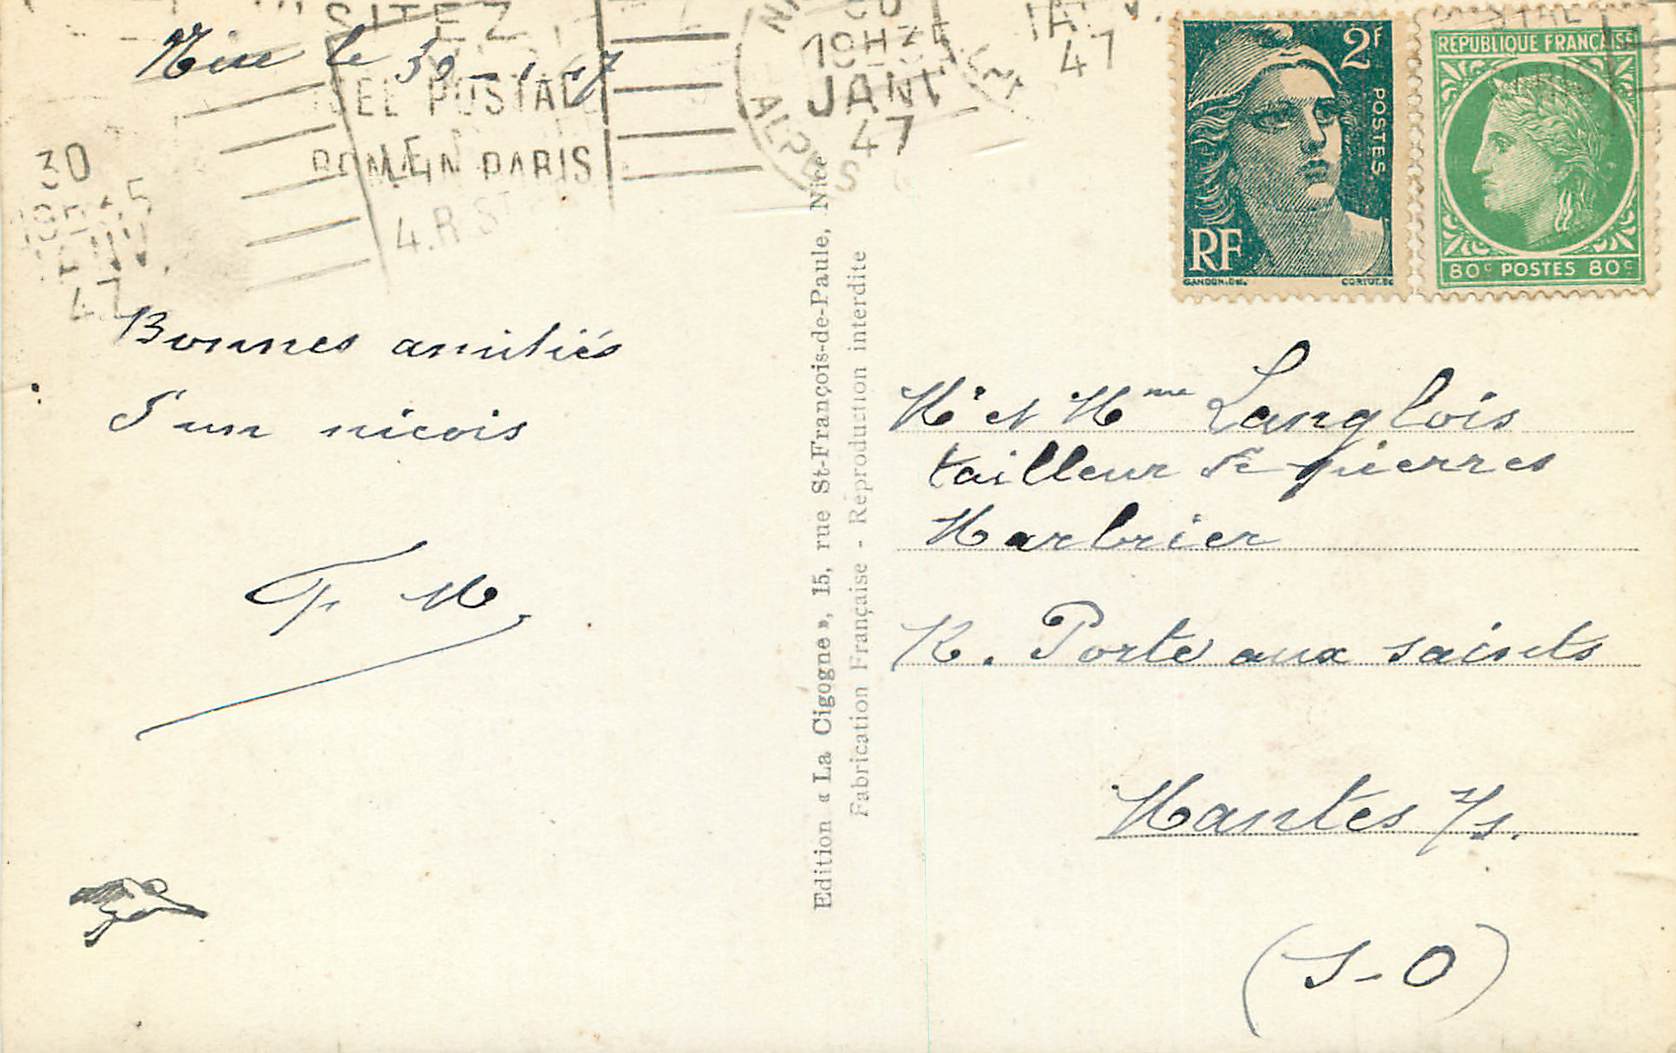 SITEZ
Nice le 30-1-47
POSTAL
ROMAIN PARIS
4.R.ST
30
JANV.
47
10H35
JANV
47
ALPES
47
2F
POSTES
RF
GANDON.DEL.
CORTOT.SC
RÉPUBLIQUE FRANÇAISE
80c POSTES 80c
Bonnes amitiés
d'un niçois
F M
Edition « La Cigogne », 15, rue St-François-de-Paule, Nice
Fabrication Française - Réproduction interdite
Mr et Mme Langlois
tailleur de pierres
Marbrier
R. Porte aux saints
Mantes s/s.
(S-O)